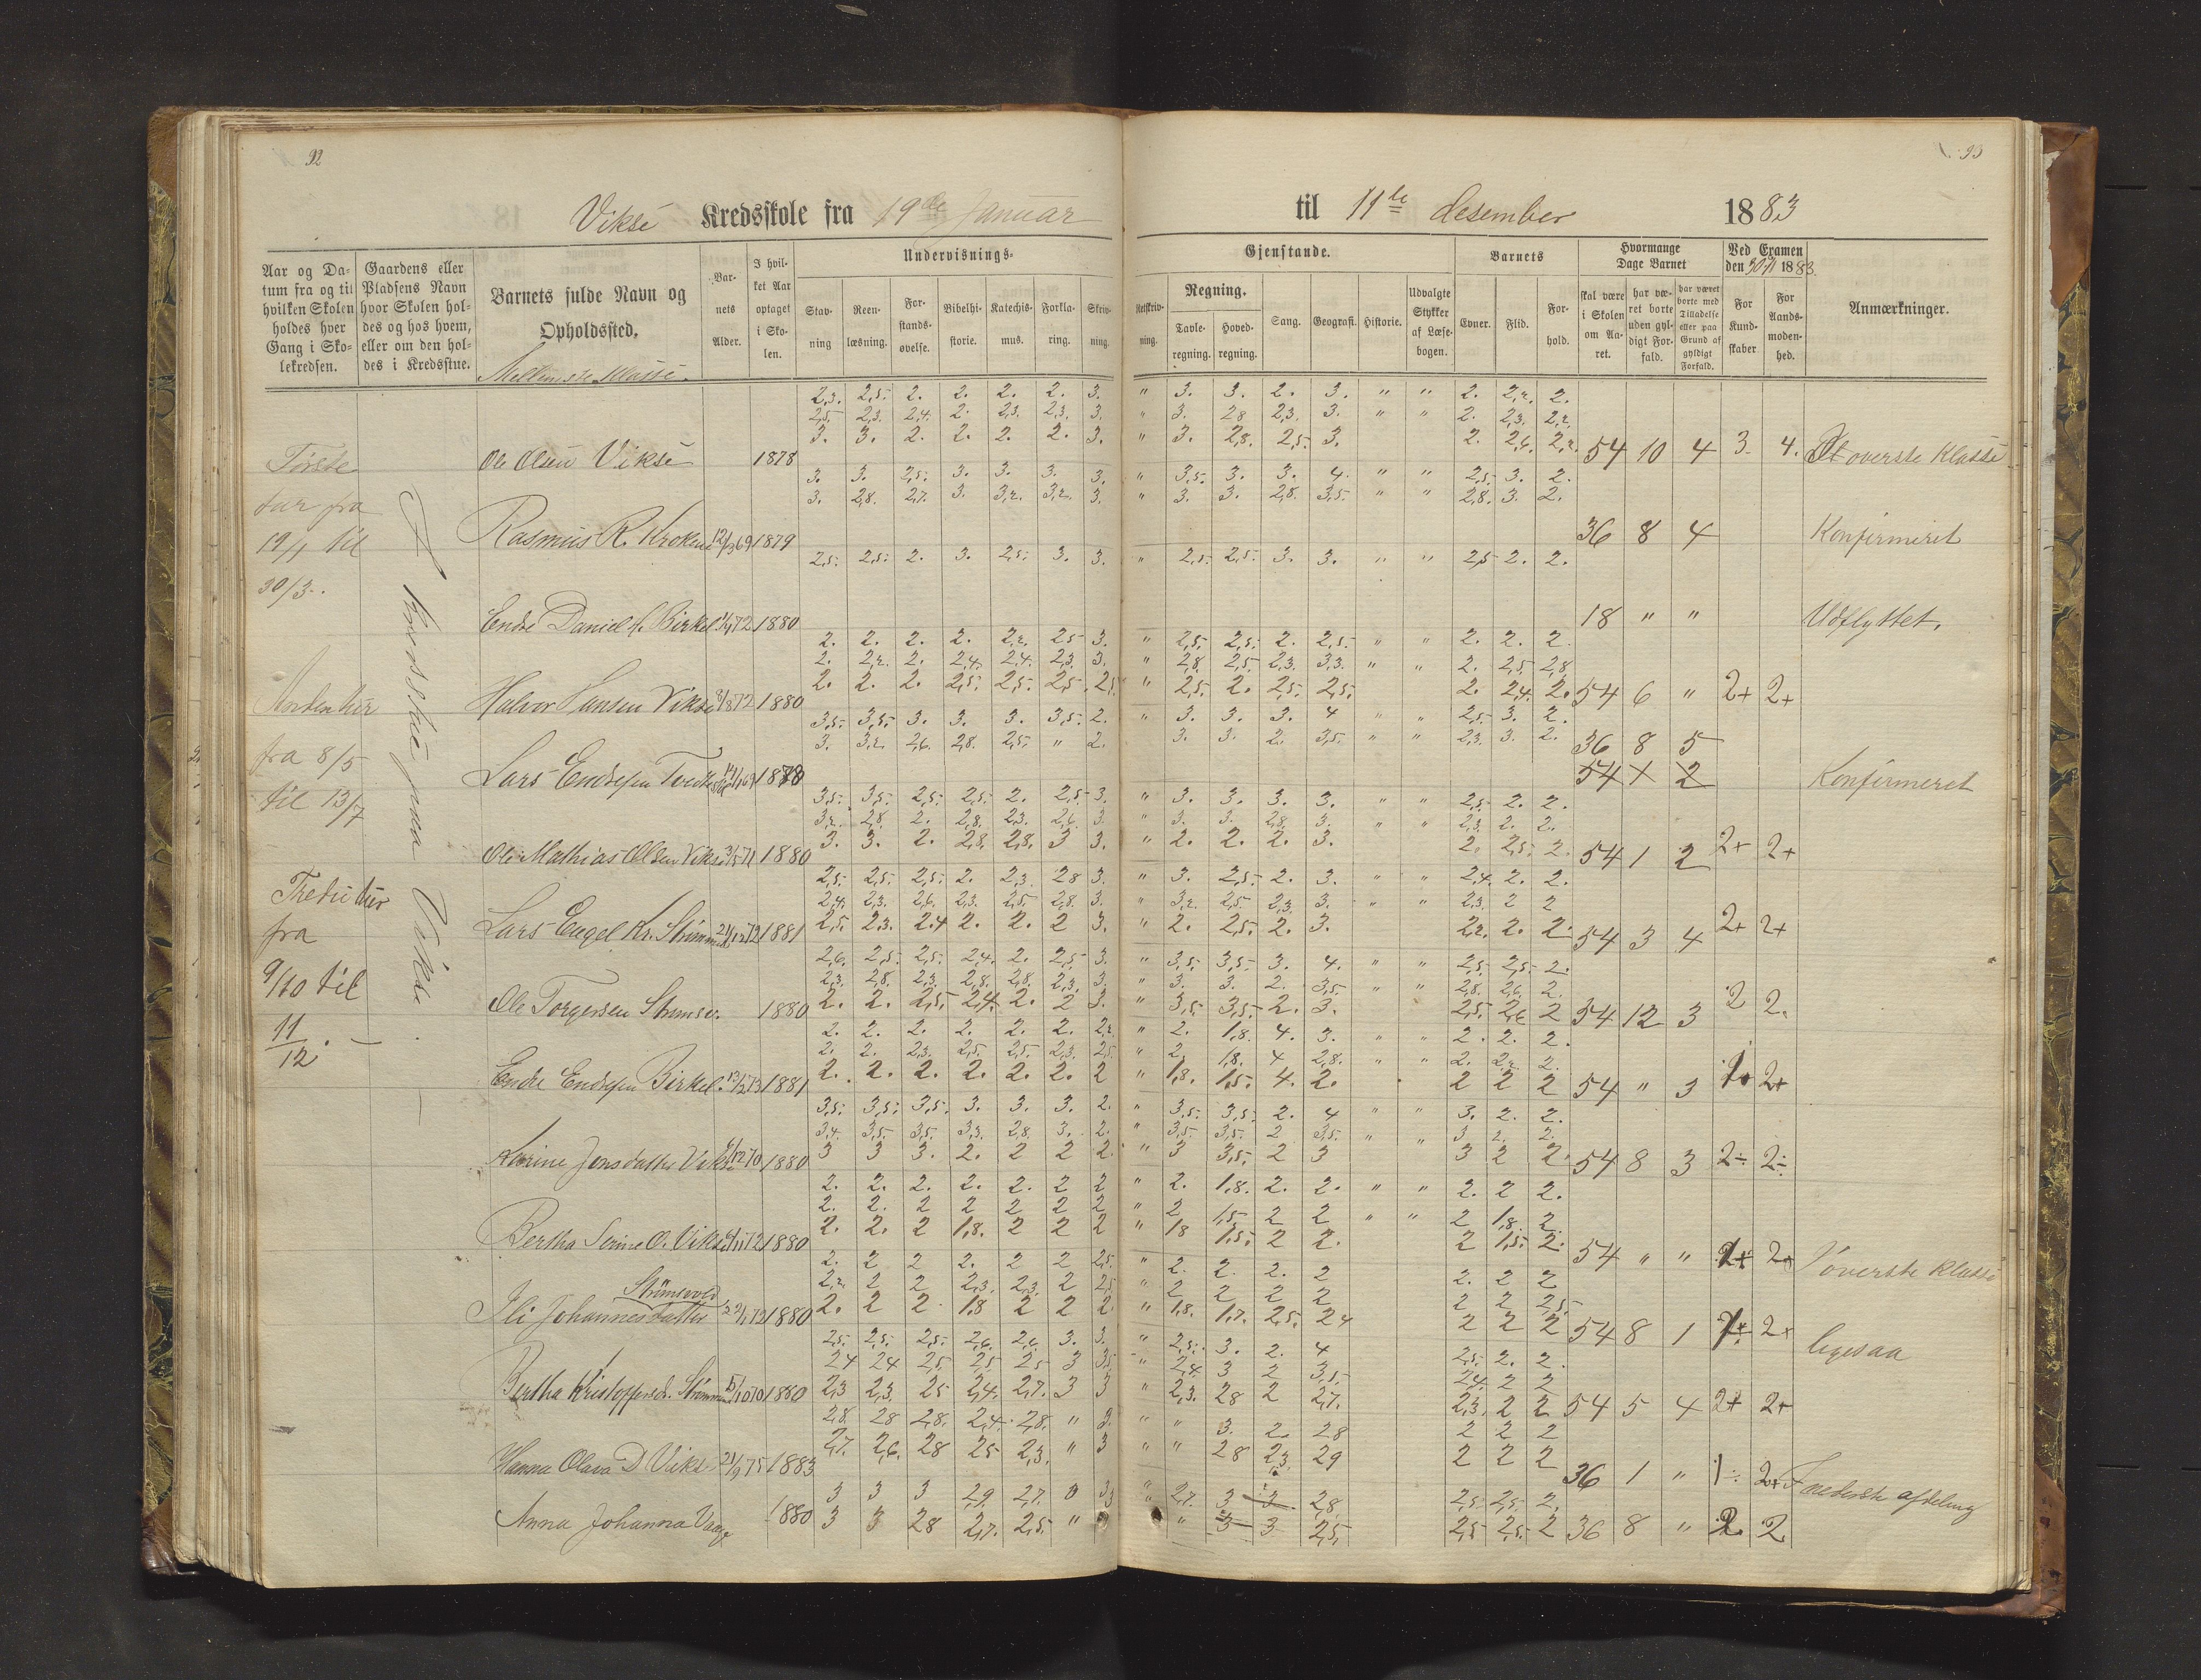 92
Viksē Kredsskole fra 19de Januar
Aar og Datum fra og til hvilken Skolen holdes hver Gang i Skolekredsen.
Gaardens eller Pladsens Navn hvor Skolen holdes og hos hvem, eller om den holdes i Kredsstue.
Barnets fulde Navn og Opholdssted.
Barnets Alder.
I hvilket Aar optaget i Skolen.
Undervisnings-
Stavning
Reenlæsning.
Forstandsøvelse.
Bibelhistorie.
Katechismus.
Forklaring.
Skrivning.
Mellemste Klasse.
Første
tur fra
19/1 til
30/3.
Anden tur
fra 8/5
til 13/7
Tredie tur
fra
9/10 til
11/12. —
I kredsstue paa Vikse.
2,3. 2,5. 2. 2. 2. 2. 3.
2,5 2,3. 2,4. 2. 2,3. 2,3. 3.
3. 3. 2. 2. 2. 2. 3.
Ole Olsen Viksē 1878
3. 3. 2,5. 3. 3. 3. 3.
3. 2,8. 2,7. 3. 3,2. 3,2. 3.
Rasmus R. Kroken 12/3 69 1879
2,5. 2,5. 2. 3. 2,5. 3. 3.
Endre Daniel J. Birkel. 72 1880
2. 2. 2. 2. 2,2. 2,5 3.
2. 2,2. 2. 2,4. 2,4. 2,3. 3.
2. 2. 2. 2,5. 2,5. 2,5. 2,5.
Halvor Hansen Vikse 8/8 72 1880
3,5. 3,5. 3. 3. 3. 3,5. 2.
3. 3,2. 2,6. 2,8. 2,5. " 2.
Lars Endresen 1878
3,5. 3,5. 2,5. 2,5. 2. 2,5 3.
3,2. 2,8. 2. 2,8. 2,3. 2,6. 3.
3. 3. 2. 2,8. 2,8. 3 3.
Ole Mathias Olsen Vikse 3/5 71 1880
2,5. 2,5. 2,5. 2. 2,3. 28 3.
2,4. 2,3. 2,6. 2,3. 2,5. 2,8. 3.
2,5. 2,3. 2,4 2. 2. 2 3.
Lars Engel Kr. 21/12 72 1881
2,6. 2,5. 2,5. 2,4. 2. 2,5 3.
2,3. 2,8. 2,3. 2,8. 2,8. 2,3. 3.
2. 2. 2,5. 2,4. 2. 2 3.
Ole Torgersen 1880
2. 2. 2. 2. 2. 2. 2,2.
2. 2. 2,3. 2,5. 2,5. 2,3. 2,5
2. 2. 2. 2. 2. 2. 2
Endre Endresen Birkel. 13/2 73 1881
3,5. 3,5. 3,5. 3. 3. 3. 2.
3,4. 3,5. 3,5. 3,3. 2,8. 3. 2.
3 3 3. 2. 2 2 2.
Karine Jensdatter Vikse 12 70 1880
2. 2. 2. 2. 2. 2 2
2. 2. 2 2 2 2 2
2. 2. 2 1,8. 2 2 2
Bertha Serine O. Vikse 11 72 1880
2. 2 2 2. 2 2 2,5.
2,2. 2 2 2,3. 2,3. 2 2,5
2. 2 2. 1,8 2 2 2.
Johannesdatter 22/1 72 1880
2,5. 2,5. 2,5. 2,6. 2,6. 3. 3.
24 24 25 25 25 3 35
2,3 2,3. 25 2,4. 2,7. 3 3
Bertha Kristoffersd. 5/10 70 1880
2,8. 28 2,8. 2,4. 2,8. " 3.
2,7. 2,6. 28 25 2,3. " 3
Hanna Olava D Vikse 21/9 75 1883
3 3 3 2,9. 2,7. 3
Anna Johanna Vaage 1880 3 3 28 2,7. 2,5. "
93
til 11te desember 1883
Gjenstande.
Retskrivning.
Regning.
Tavleregning.
Hovedregning.
Sang.
Geografi.
Historie.
Udvalgte Stykker af Læsebogen.
Barnets
Evner.
Flid.
Forhold.
Hvormange Dage Barnet
skal være i Skolen om Aaret.
har været borte uden gyldigt Forfald.
har været borte med Tilladelse eller paa Grund af gyldigt Forfald.
Ved Examen den 30/11 1883.
For Kundskaber
For Aandsmodenhed.
Anmærkninger.
" 3. 3. 2. 3. " " 2. 2,2. 2.
" 3. 28 2,3. 3. " " 2. 2,3. 2,2.
" 3. 2,8. 2,5. 3. 2. 2,6. 2,2. 54 10 4 3. 4. overste Klasse
" 3,5. 3. 3. 4. " " 2,5. 3. 2.
" 3. 3. 2,8. 3,5. " " 2,8. 3. 2.
36 8 4 Konfirmeret
" 2,5. 2,5. 3. 3. " " 2,5 2. 2.
18 " " Udflyttet.
" 2,5. 2,5. 2. 2,5. " " 2. 2. 2.
" 2,8. 2,5. 2,3. 3,3. " " 2. 2,5. 2,8
" 2,5. 2. 2,5. 2,5. 2. 2,4. 2. 54 6 " 2+ 2+
" 3. 3. 3. 4 " " 2,5. 3. 2.
3. 3. 2. 3,5. " " 2,3. 3. 2. 36 8 5
Konfirmeret
" 3. 3. 3. 3. " " 2,5. 2. 2.
" 3. 3. 2,8. 3. " " 2,3. 2. 2.
" 2. 2. 2. 3. 2. 2,5. 2. 54 1 2 2+ 2+
" 3. 2,5. 2. 3. " " 2,4. 2. 2.
" 3,2. 2,5. 2,3. 3. " " 2,3. 2 2
" 2. 2,5. 2. 3. 2,2. 2. 2. 54 3 4 2+ 2+
" 3,5. 3,5. 3. 4. " " 2,5. 2,5. 2.
" 3. 3. 2. 3,5. " " 2,8. 2,6. 2.
" 3,5. 3,5. 2. 3. 2,5. 2,6 2 54 12 3 2 2.
" 2. 1,8. 4. 3. " " 2. 2. 2.
" 2. 1,8. 4 2,8. " " 2. 2,2. 2.
" 1,8. 1,5. 4. 2. 2 2 2 54 " 3 2+
" 3,5. 3,5. 2. 4 " " 3. 2. 2.
" 3,5. 3,5. 2 3,5. " " 3 2. 2.
" 3 3,5. 2 3 3 2 2. 54 8 3 2÷ 2÷
" 2. 1,8. 2. 2. " " 2. 2 2.
" 2 1,5 2 2 " " 2 1,8. 2.
" 18 1,5. 2 2. 2 1,5. 2. 54 " " 2+ I øverste Klasse
" 2. 2. 2. 2 2. 2 2
" 2 2 2 2 2 2 2,5.
" 1,8. 1,7. 2,5. 24 2 2 2 54 8 1 2+ ligesaa
" 2,5. 3. 2. 4 2,5. 2. 2.
" 2,4. 3 2 3,5. 2,4. 2 2
" 2,3. 28 2 2,7. 2,3. 2 2 54 5 4 2+ 2+
" " 3. 2. 28 2 2 2
" " 28 2,3. 29 2 2 2 36 1 " 1÷ 2+ I nederste afdeling
" 2,7. 3 3 28 2,5. 2,5. 2.
" 3 3 2,5. 2,5 2,5. 2 36 8 " 2. 2